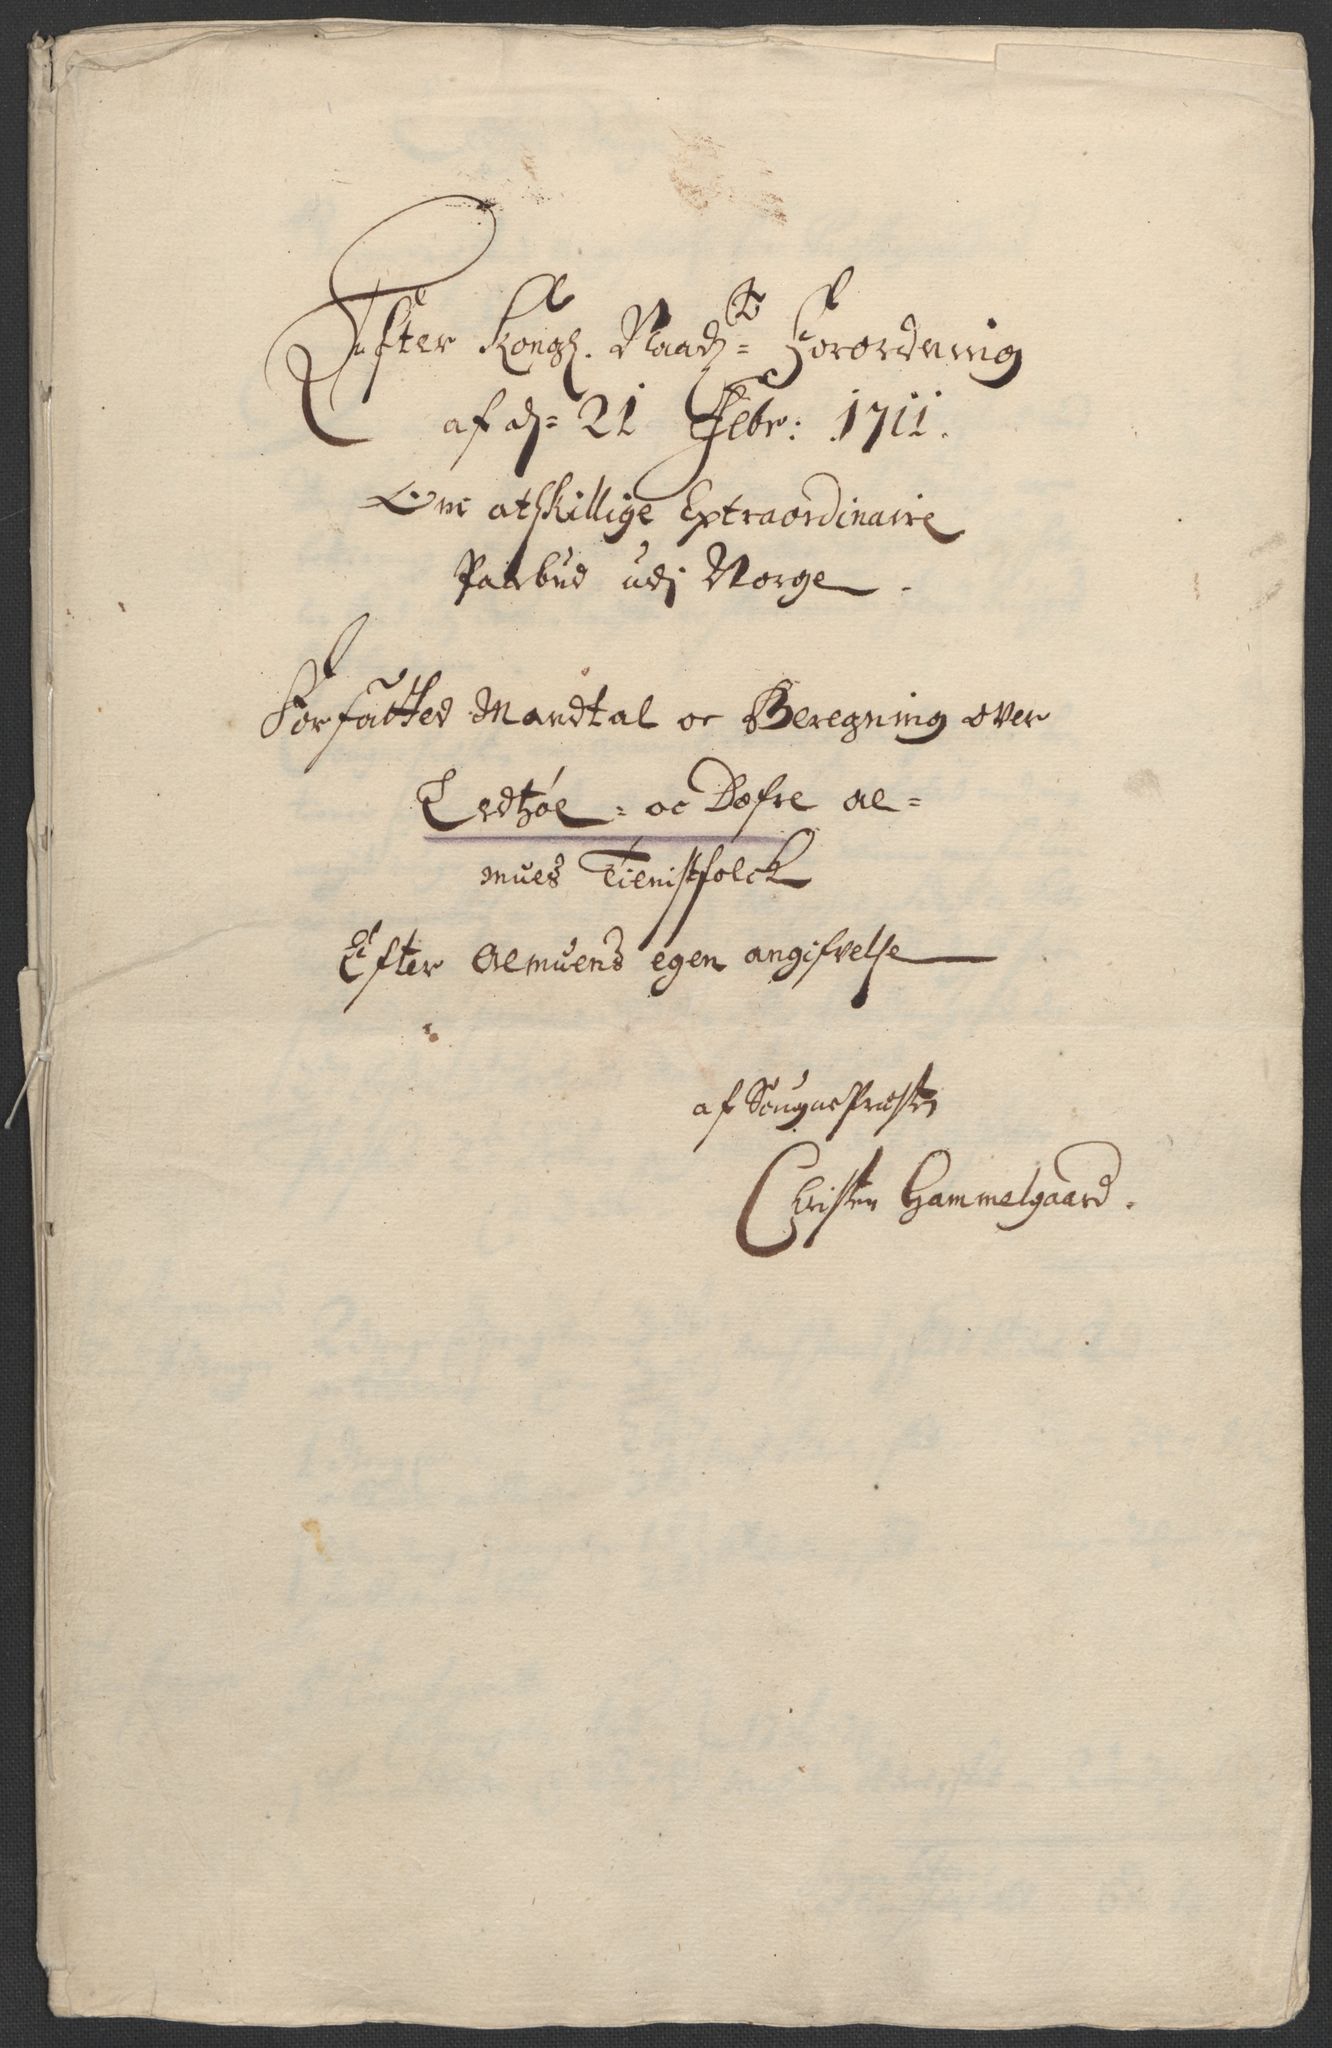 Efter Kongl. Naadste Forordning
af d= 21 Febr: 1711.
Om atskillige Extraordinaire
Paabud udj Norge.
Forfatted Mandtal oc Beregning over
Eedtzøe = oc Dofre al=
mues Tienistfolck
Efter Almuens egen angifvelse
af SougnePresten
Christen Hammelgaard.